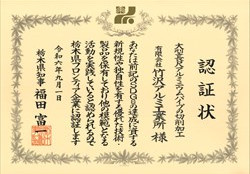 認証状
大口穴長尺アルミニウムパイプの切削加工
有限会社 竹沢アルミ工業所 様
あなたは前記のSDGsの達成に資する
新規性や独自性を有する優れた技術
製品を保有しており他の模範となる
活動を実践していると認められるので
栃木県フロンティア企業に認証します
令和六年九月一日
栃木県知事 福田富一